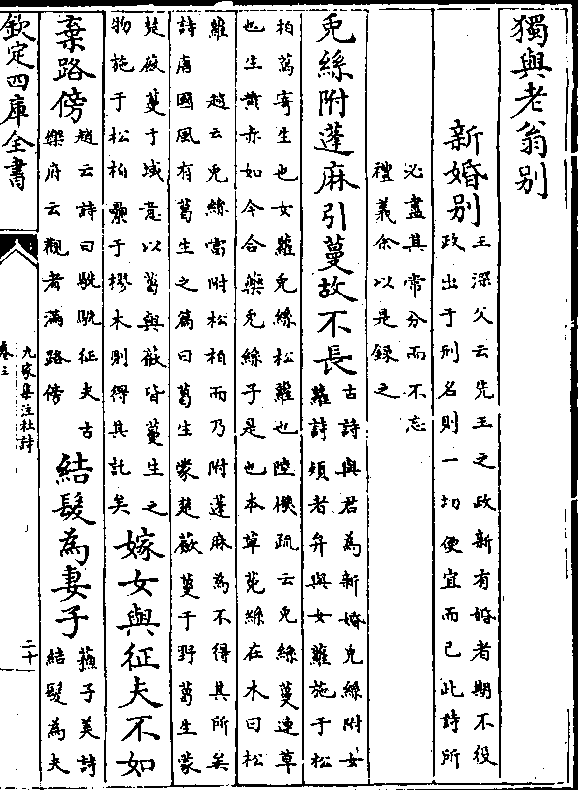 獨與老翁别
新婚别
王深父云先王之政新有婚者期不役
政出于刑名則一切便宜而已此詩所
必盡其常分而不忘
禮義余以是録之
兎絲附蓬麻引蔓故不長
古詩與君為新婚兎絲附女
蘿詩頍者弁與女蘿施于松
柏蔦寄生也女蘿兎絲松蘿也陸機疏云兎絲蔓連草
也生黄赤如今合藥兎絲子是也本草菟絲在木曰松
蘿 趙云兎絲當附松柏而乃附蓬麻為不得其所矣
詩唐國風有葛生之篇曰葛生蒙楚蘞蔓于野葛生蒙
楚蘞蔓于域意以葛與蘞皆蔓生之
物施于松柏蘽于樛木則得其託矣
嫁女與征夫不如
棄路傍
趙云詩曰駪駪征夫古
樂府云觀者滿路傍
結髮為妻子
蘇子美詩
結髮為夫
欽定四庫全書
九家集注杜詩
卷三
二十